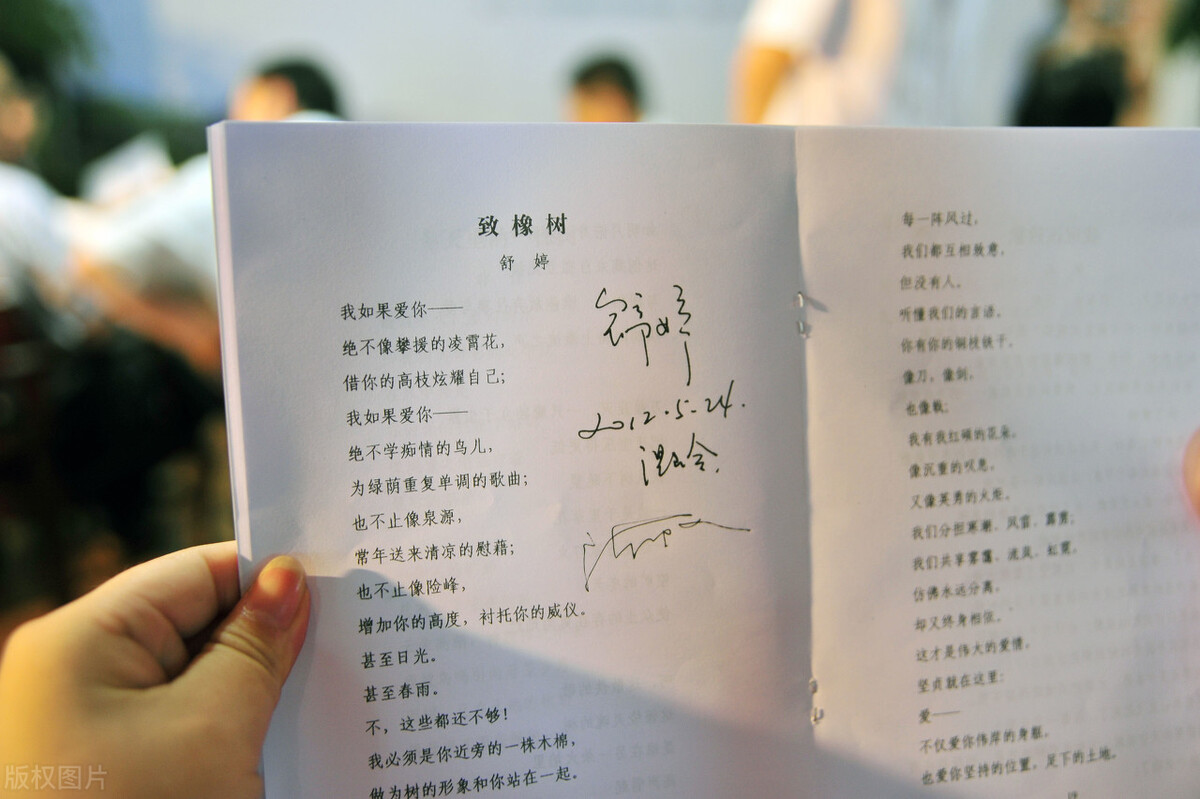 致橡树
舒婷
我如果爱你——
绝不像攀援的凌霄花，
借你的高枝炫耀自己；
我如果爱你——
绝不学痴情的鸟儿，
为绿荫重复单调的歌曲；
也不止像泉源，
常年送来清凉的慰藉；
也不止像险峰，
增加你的高度，衬托你的威仪。
甚至日光。
甚至春雨。
不，这些都还不够！
我必须是你近旁的一株木棉，
做为树的形象和你站在一起。
舒婷
2012.5.24.
每一阵风过，
我们都互相致意，
但没有人，
听懂我们的言语。
你有你的铜枝铁干，
像刀，像剑，
也像戟；
我有我红硕的花朵，
像沉重的叹息，
又像英勇的火炬。
我们分担寒潮、风雷、霹雳；
我们共享雾霭、流岚、虹霓。
仿佛永远分离，
却又终身相依。
这才是伟大的爱情，
坚贞就在这里：
爱——
不仅爱你伟岸的身躯，
也爱你坚持的位置，足下的土地。
版权图片